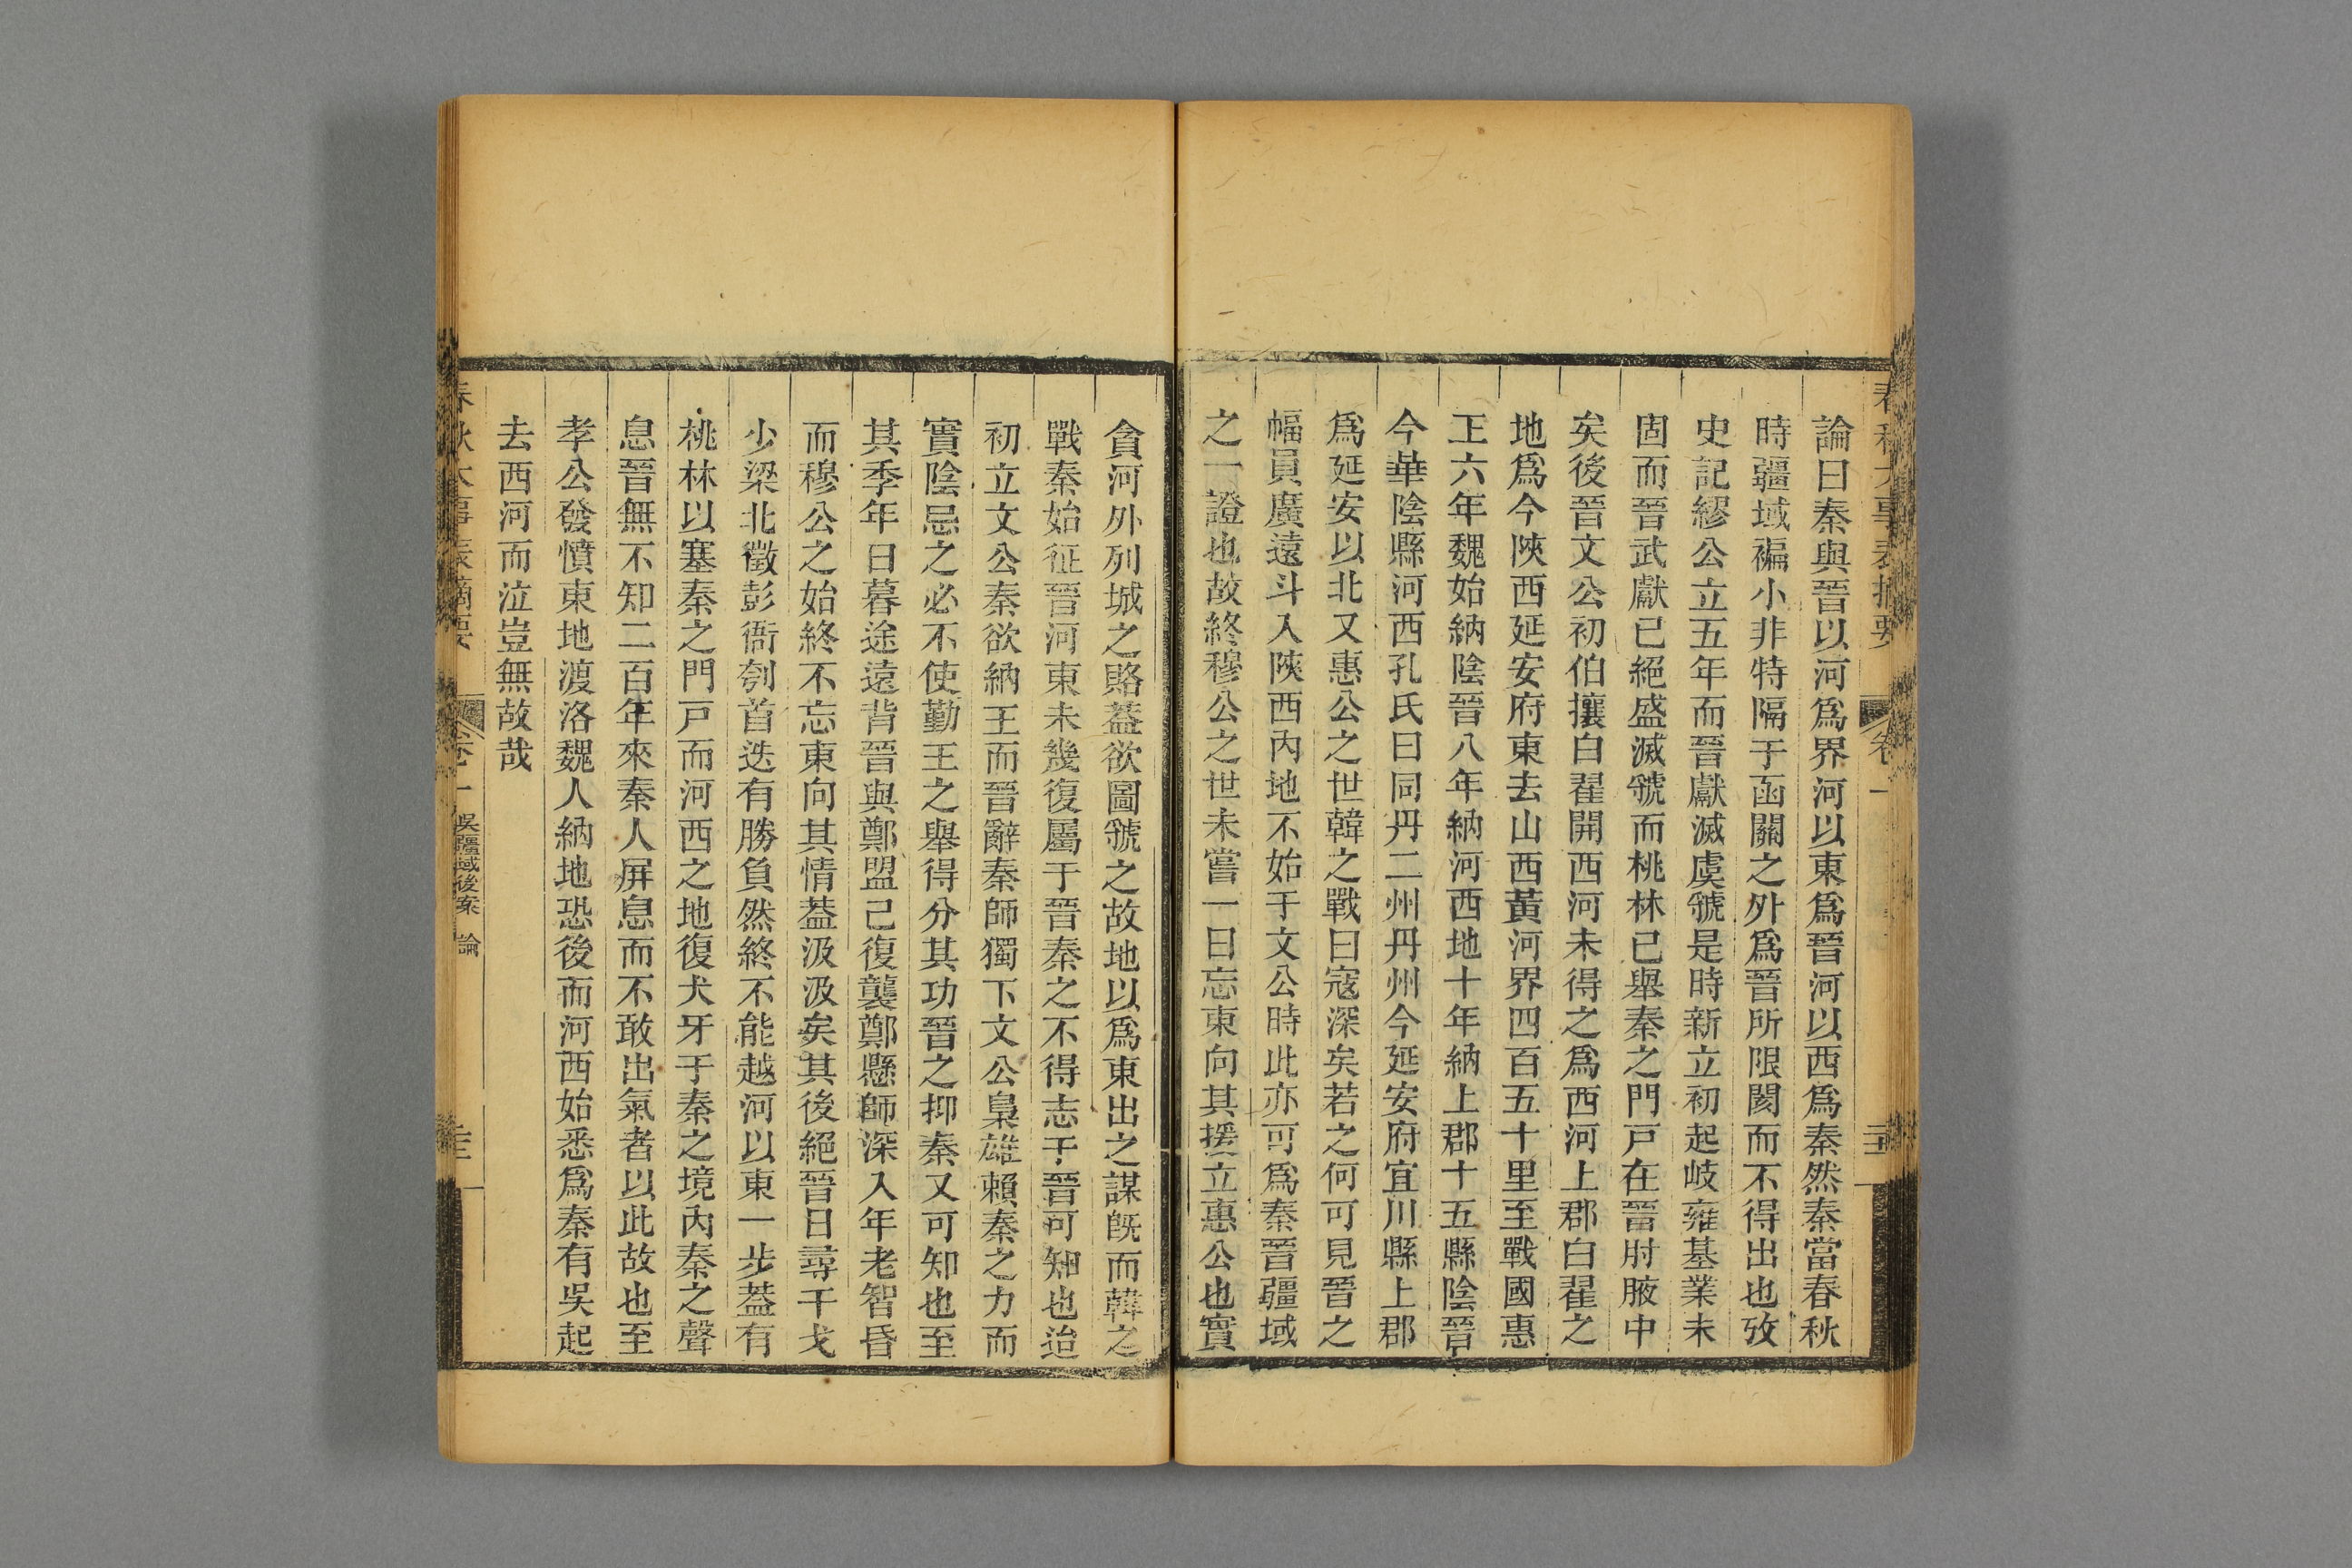 春秋大事表摘要
卷一
論曰秦與晉以河爲界河以東爲晉河以西爲秦然秦當春秋
時疆域褊小非特隔于函關之外爲晉所限閡而不得出也攷
史記繆公立五年而晉獻滅虞虢是時新立初起岐雍基業未
固而晉武獻已絕盛滅虢而桃林已舉秦之門戸在晉肘腋中
矣後晉文公初伯攘白翟開西河未得之爲西河上郡白翟之
地爲今陜西延安府東去山西黃河界四百五十里至戰國惠
王六年魏始納陰晉八年納河西地十年納上郡十五縣陰晉
今華陰縣河西孔氏曰同丹二州丹州今延安府宜川縣上郡
爲延安以北又惠公之世韓之戰曰寇深矣若之何可見晉之
幅員廣遠斗入陜西內地不始于文公時此亦可爲秦晉疆域
之一證也故終穆公之世未嘗一日忘東向其援立惠公也實
貪河外列城之賂葢欲圖虢之故地以爲東出之謀旣而韓之
戰秦始征晉河東未幾復屬于晉秦之不得志于晉可知也迨
初立文公秦欲納王而晉辭秦師獨下文公梟雄賴秦之力而
實陰忌之必不使勤王之舉得分其功晉之抑秦又可知也至
其季年日暮途遠背晉與鄭盟己復襲鄭懸師深入年老智昏
而穆公之始終不忘東向其情葢汲汲矣其後絕晉日尋干戈
少梁北徵彭衙刳首迭有勝負然終不能越河以東一步葢有
桃林以塞秦之門戸而河西之地復犬牙于秦之境內秦之聲
息晉無不知二百年來秦人屏息而不敢出氣者以此故也至
孝公發憤東地渡洛魏人納地恐後而河西始悉爲秦有吳起
去西河而泣豈無故哉
春秋大事表摘要
卷一
吳疆域後案 論